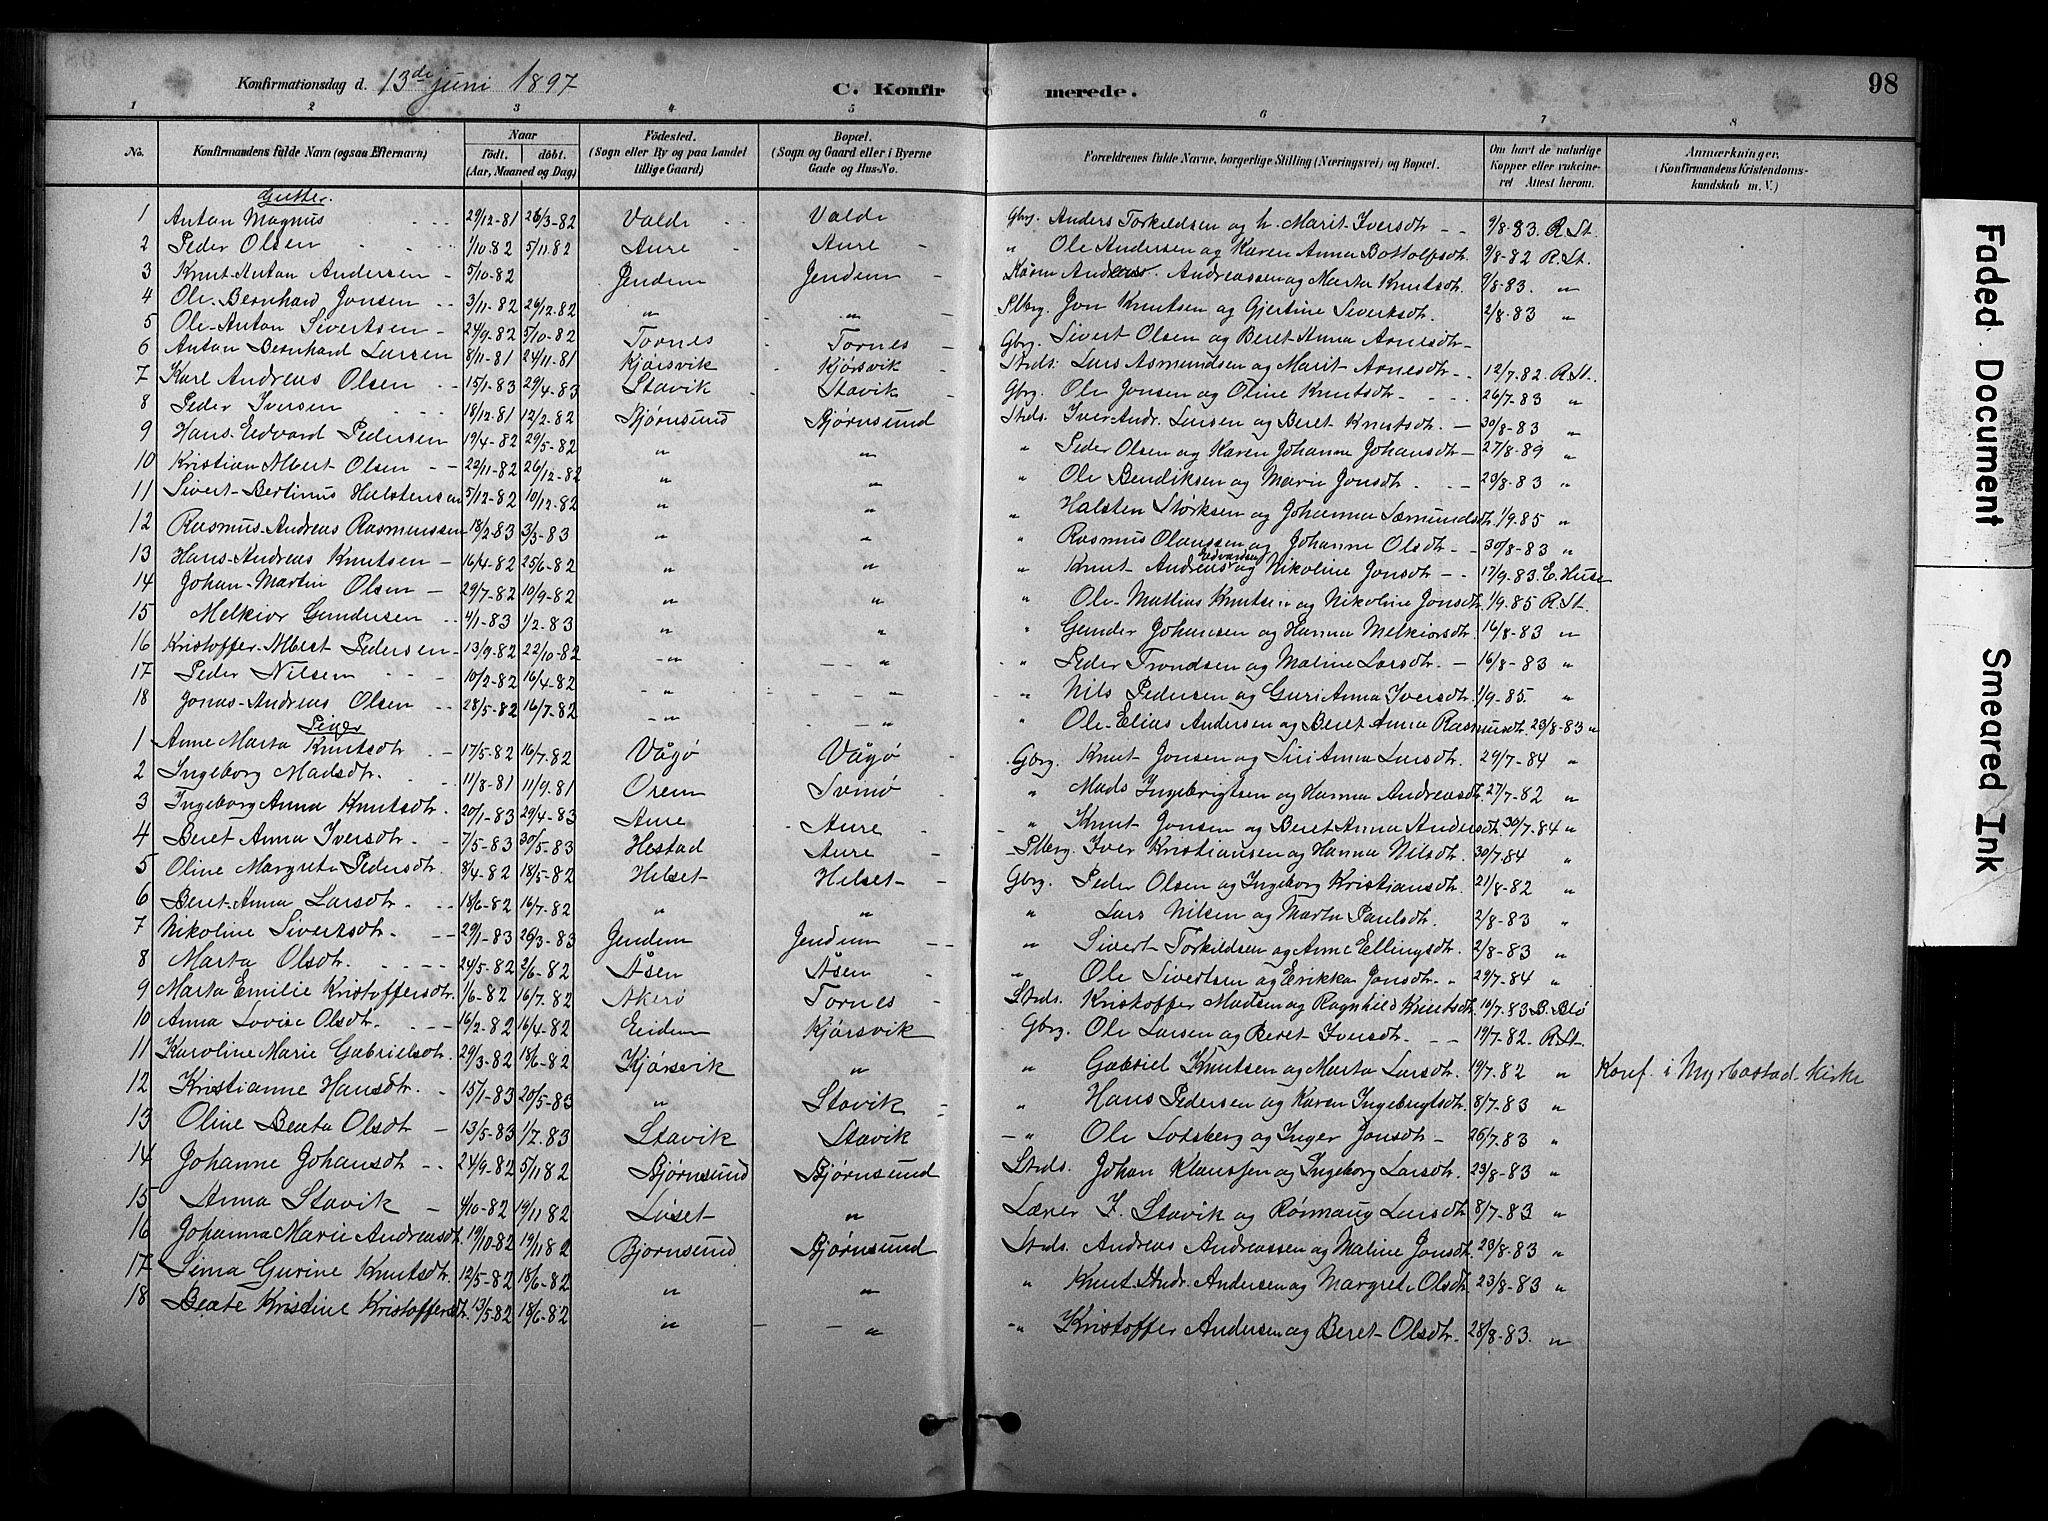 Konfirmationsdag d. 13de juni 1897 C. Konfirmerede. 98
1 2 3 4 5 6 7 8
No. Konfirmandens fulde Navn (ogsaa Efternavn) Naar født. døbt. (Aar, Maaned og Dag) Fødested. (Sogn eller By og paa Landet tillige Gaard) Bopæl. (Sogn og Gaard eller i Byerne Gade og Hus-No. Forældrenes fulde Navne, borgerlige Stilling (Næringsvei) og Bopæl. Om havt de naturlige Kopper eller vakcineret Attest herom. Anmærkninger. (Konfirmandens Kristendomskundskab m. V.)
Gutter.
1 Anton Magnus 29/12-81 26/3-82 Valde Valde Gbrg. Anders Torkildsen og h. Marit Iversdtr 9/8-83. R.St.
2 Peder Olsen 1/10.82 5/11.82 Aure Aure " Ole Andersen og Karen Anna Bottolfsdtr 9/8-82 R.St.
3 Knut Anton Andersen 5/10-82 Jendem Jendem Andreassen og Marta Knutsdtr. 9/8-83. "
4 Ole Bernhard Jonsen 3/11-82 26/12-82 " " Plbrg. Jon Knutsen og Gjertine Sivertsdtr. 2/8-83 "
5 Ole Anton Sivertsen 24/9-82 5/10-82 Tornes Tornes Gbrg. Sivert Olsen og Beret Anna Arnesdtr
6 Anton Bernhard Larsen 8/11-81 24/11-81 Kjørsvik Kjørsvik Strds: Lars Asmundsen og Marit Arnesdtr 12/7-82 R.St.
7 Karl Andreas Olsen 15/1-83 29/4-83 Stavik Stavik Gbrg. Ole Jonsen og Oline Knutsdtr 26/7-83 "
8 Peder Iversen 18/12.81 12/2-82 Bjørnsund Bjørnsund Strds. Iver Andr. Larsen og Beret Knutsdtr. 30/8-83 "
9 Hans Edvard Pedersen 19/4-82 29/5-82 " " " Peder Olsen og Karen Johanna Johansdtr 27/8-89 "
10 Kristian Albert Olsen 22/11-82 26/12-82 " " " Ole Bendiksen og Marie Jonsdtr 23/8-83 "
11 Sivert Bertinus Halstensen 5/12-82 10/12-82 " " " Halsten Størksen og Johanna Sæmundsdtr 1/9.85 "
12 Rasmus Andreas Rasmussen 18/2-83 3/3-83 " " " Rasmus Olaussen og Johanne Olsdtr 30/8-83 "
13 Hans Andreas Knutsen 16/4-82 25/6-82 " " " Knut Andreas Edvardsen og Nikoline Jonsdtr 17/9-83 E. Huse
14 Johan Martin Olsen 29/7-82 10/9-82 " " " Ole Mattias Knutsen og Nikoline Jonsdtr. 1/9.85 R.St.
15 Melkior Gundersen 4/1-83 1/2-83 " " " Gunder Johansen og Hanna Melkiorsdtr 16/8-83 "
16 Kristoffer Albert Pedersen 13/9-82 22/10-82 " " " Peder Trondsen og Maline Larsdtr. 16/8-83 "
17 Peder Nilsen 10/2-82 16/4-82 " " " Nils Pedersen og Guri Anna Iversdtr. 1/9.85 "
18 Jonas Andreas Olsen 28/5-82 16/7-82 " " " Ole Elias Andersen og Beret Anna Rasmusdtr 23/8-83 "
Piger
1 Anne Marta Knutsdtr 17/5-82 16/7.82 Vågø Vågø Gbrg. Knut Jonsen og Siri Anna Larsdtr. 29/7-84 "
2 Ingeborg Madsdtr. 11/8-81 11/9.81 Orem Svinø " Mads Ingebrigtsen og Hanna Andreasdtr 27/7-82 "
3 Ingeborg Anna Knutsdtr. 20/1-83 29/4-83 Aure Aure " Knut Jonsen og Beret Anna Andersdtr. 30/7.84 "
4 Beret Anna Iversdtr. 7/5-83 30/5-83 Hestad Aure Plbrg. Iver Kristiansen og Hanna Nilsdtr. 30/7.84 "
5 Oline Margrete Pedersdtr. 8/4-82 18/5-82 Hilset Hilset Gbrg. Peder Olsen og Ingeborg Kristiansdtr. 21/8-82 "
6 Beret Anna Larsdtr. 18/6-82 16/7-82 " " " Lars Nilsen og Marta Paulsdtr. 2/8-83 "
7 Nikoline Sivertsdtr. 29/1-83 26/3-83 Jendem Jendem " Sivert Torkildsen og Anne Ellingsdtr. 2/8-83 "
8 Marta Olsdtr. 24/5-82 2/6-82 Åsen Åsen " Ole Sivertsen og Erikka Jonsdtr. 29/7-84 "
9 Marta Emilie Kristoffersdtr. 1/6-82 16/7.82 Akerø Tornes Strds. Kristoffer Madsen og Ragnhild Knutsdtr. 19/7.83 B. Blø
10 Anna Lovise Olsdtr. 16/2-82 16/4-82 Eidem Kjørsvik Gbrg. Ole Larsen og Beret Iversdtr. 19/7-82 R.St.
11 Karoline Marie Gabrielsdtr. 29/3-82 18/6-82 Kjørsvik " " Gabriel Knutsen og Marta Larsdtr. 19/7.82 " Konf. i Myrbostad Kirke
12 Kristianne Hansdtr. 15/1-83 20/5-83 " Stavik " Hans Pedersen og Karen Ingebrigtsdtr. 8/7-83 "
13 Oline Beata Olsdtr 13/5-83 1/7.83 Stavik Stavik " Ole Lodsberg og Inger Jonsdtr 26/7.83 "
14 Johanne Johansdtr 24/9-82 5/11 82 Bjørnsund Bjørnsund Strds. Johan Klaussen og Ingeborg Larsdtr. 23/8-83 "
15 Anna Stavik 4/10-82 19/11 82 Løset " Lærer I. Stavik og Rønnaug Larsdtr 8/7-83 "
16 Johanna Marie Andreasdtr 19/10-82 19/11 82 Bjørnsund Bjørnsund Strds. Andreas Andreassen og Maline Jonsdtr. 23/8-83 "
17 Sina Gurine Knutsdtr. 12/5-82 18/6-82 " " " Knut Andr. Andersen og Margrete Olsdtr. 23/8-83 "
18 Beate Kristine Kristoffersdtr. 13/5-82 18/6-82 " " " Kristoffer Andersen og Beret Olsdtr. 28/8-83. "
Faded Document
Smeared Ink